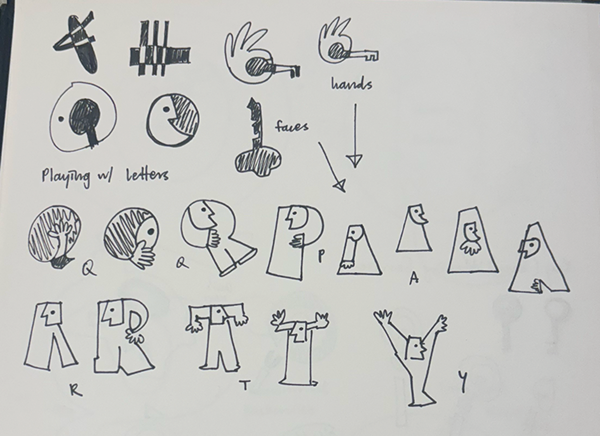 hands
faces
Playing w/ letters
Q
Q
P
A
R
T
Y